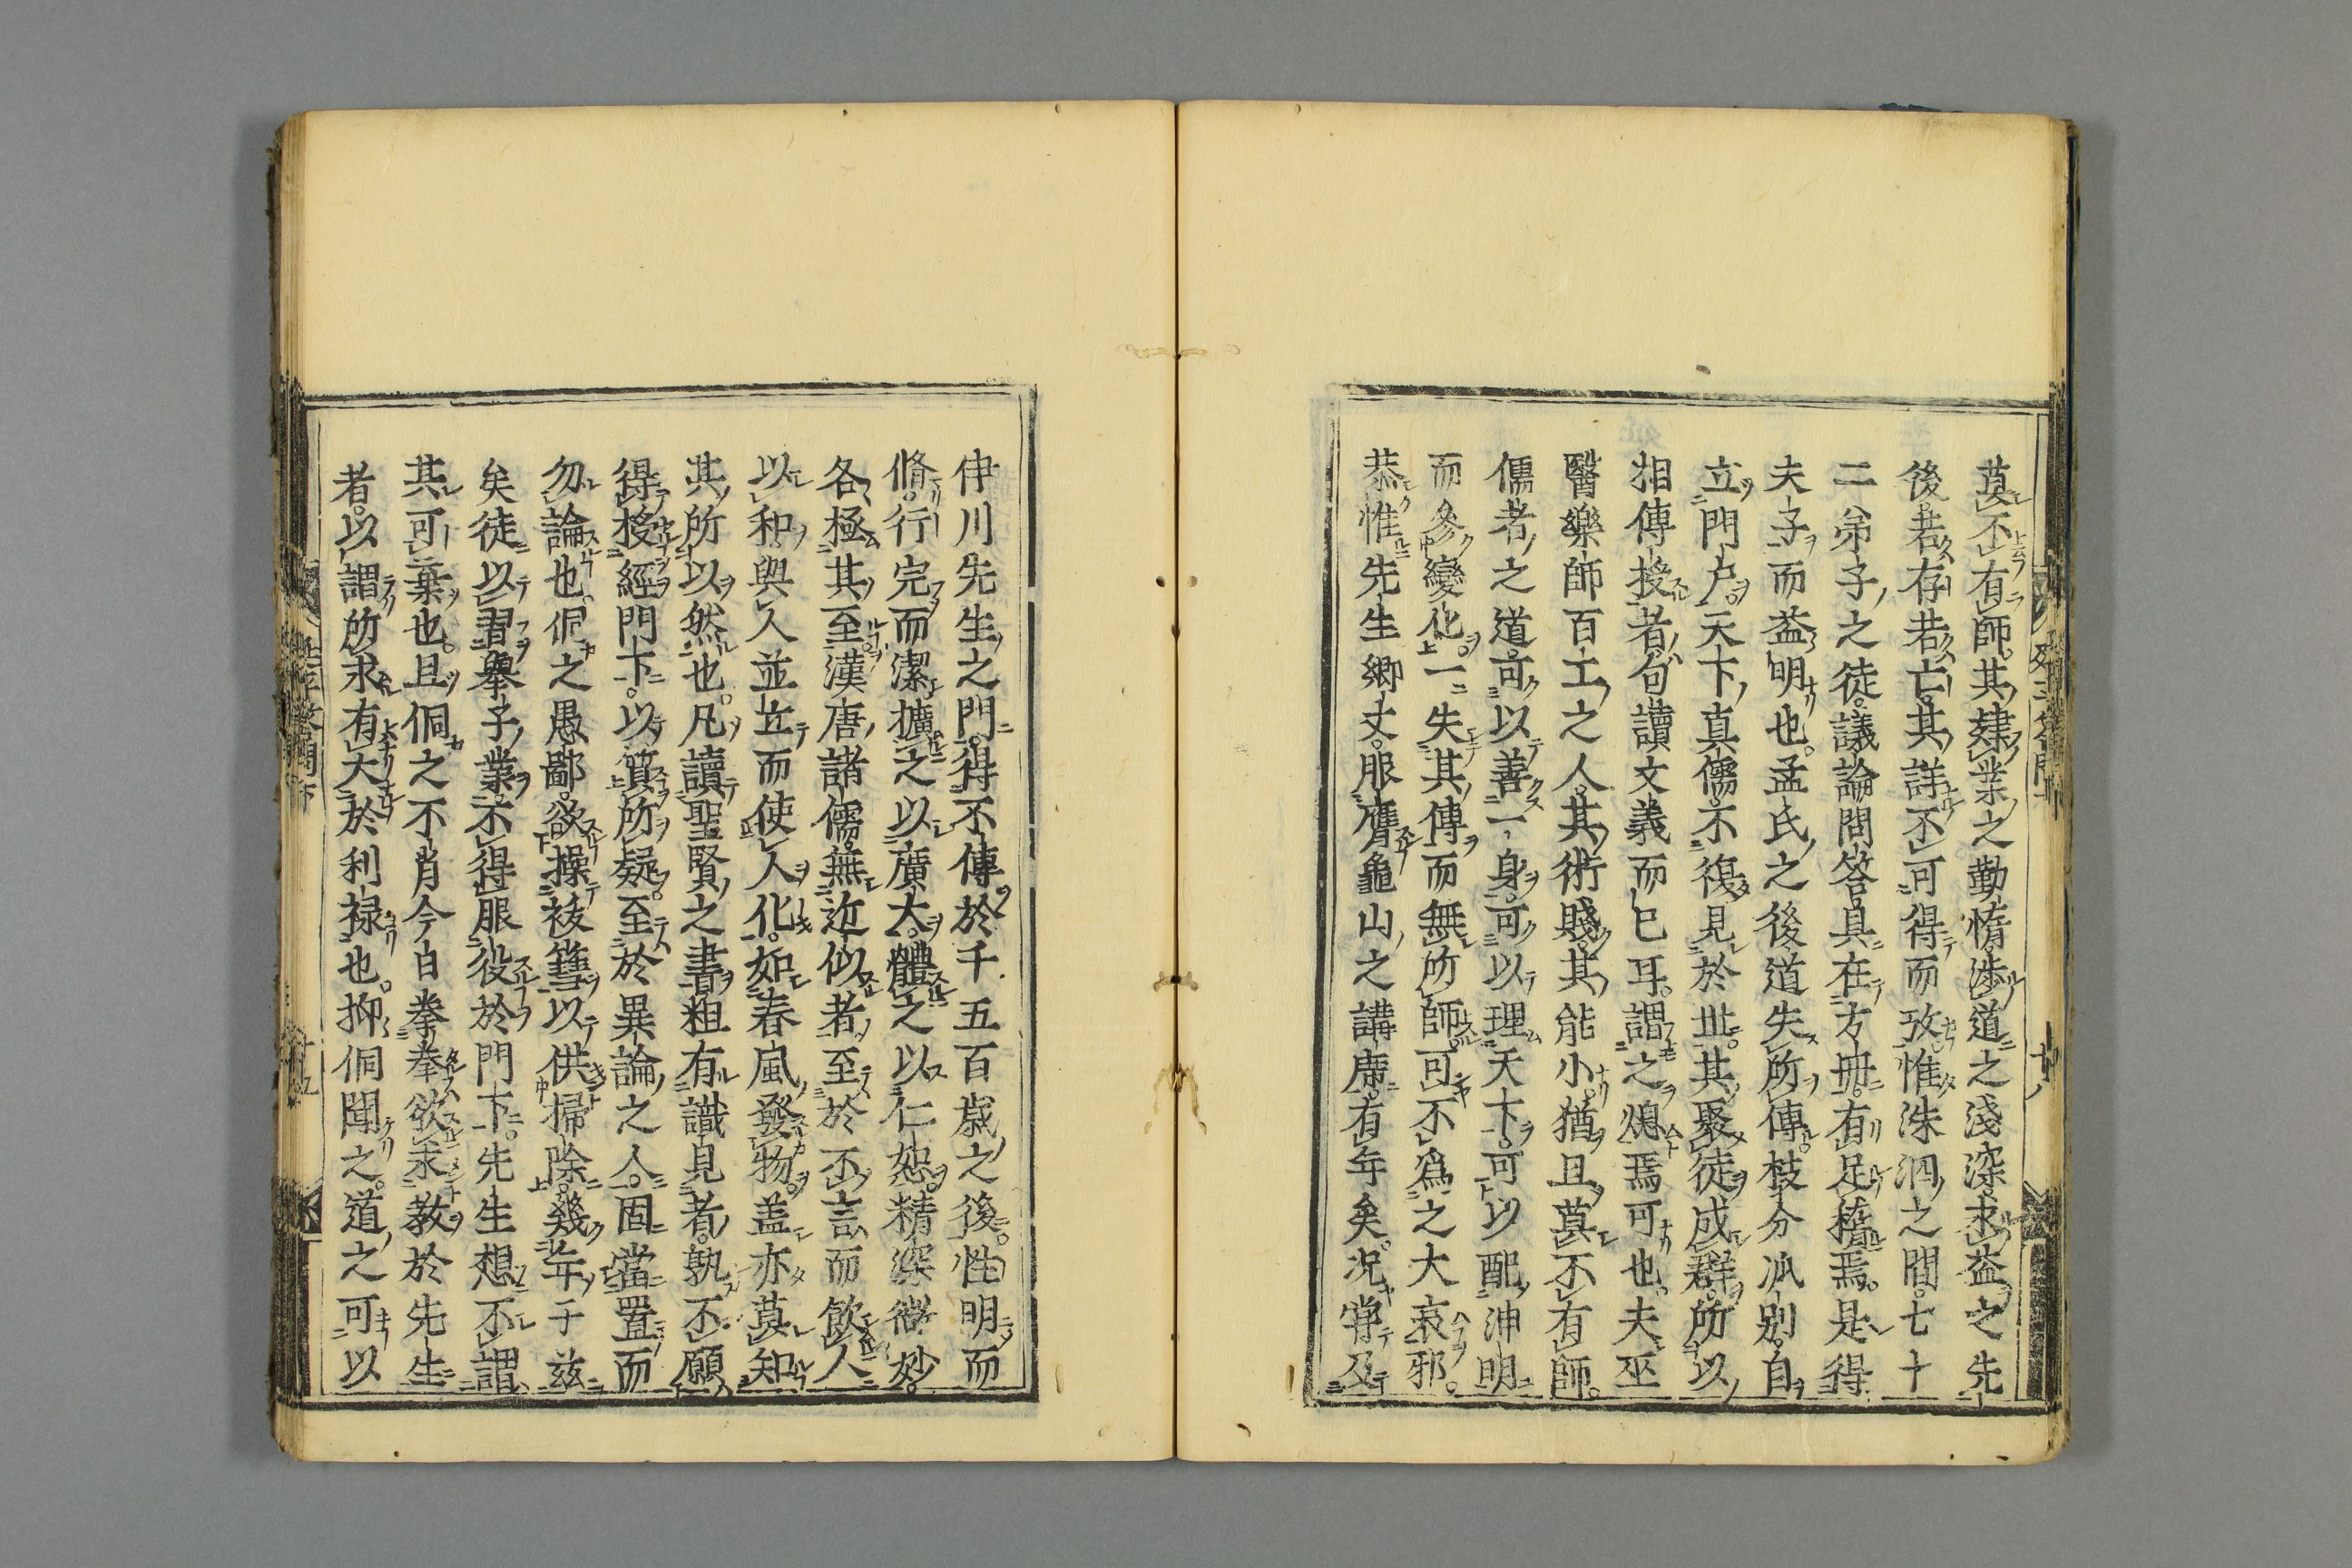 莫不有師其肄業之勤惰渉道之淺深求益之先
後若存若亡其詳不可得而攷惟洙泗之間七十
二弟子之徒議論問答具在方冊有足稽焉是得
夫子而益明也孟氏之後道失所傳枝分派别自
立門户天下真儒不復見於丗其聚徒成群所以
相傳授者句讀文義而已耳謂之熄焉可也夫巫
醫樂師百工之人其術賤其能小猶且莫不有師
儒者之道可以善一身可以理天下可以配神明
而參變化一失其傳而無所師可不爲之大哀邪
恭惟先生鄉丈服膺龜山之講席有年矣况嘗及
伊川先生之門得不傳於千五百歳之後性明而
脩行完而潔擴之以廣大體之以仁恕精深微妙
各極其至漢唐諸儒無近似者至於不言而飲人
以和與人並立而使人化如春風發物盖亦莫知
其所以然也凡讀聖賢之書粗有識見者孰不願
得授經門下以質所疑至於異論之人固當置而
勿論也侗之愚鄙欲操袚篲以供掃除幾年于兹
矣徒以習舉子業不得服役於門下先生想不謂
其可棄也且侗之不肖今日拳拳欲求教於先生
者以謂所求有大於利禄也抑侗聞之道之可以